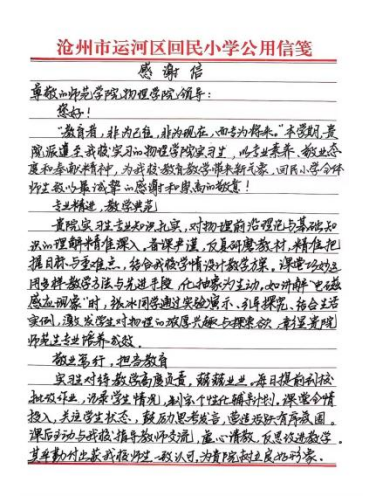 沧州市运河区回民小学公用信笺
感谢信
尊敬的师范学院物理学院领导：
您好！
“教育者，非为已往，非为现在，而专为将来。”本学期，贵
院派遣至我校实习的物理学院实习生，以专业素养、敬业态
度和奉献精神，为我校教育教学带来新气象，回民小学全体
师生致以最诚挚的感谢和崇高的敬意！
专业精进，教学典范
贵院实习生专业知识扎实，对物理前沿理论与基础知
识的理解精准深入。备课严谨，反复研磨教材，精准把
握目标与重难点，结合我校学情设计教学方案。课堂巧妙运
用多样教学方法与先进手段，化抽象为生动。如讲解“电磁
感应现象”时，张冰同学通过实验演示、引导探究、结合生活
实例，激发学生对物理的浓厚兴趣与探索欲，彰显贵院
师范生专业培养成效。
敬业笃行，担当教育
实习生对待教学高度负责，兢兢业业，每日提前到校
批改作业，记录学生情况，制定个性化辅导计划。课堂全情
投入，关注学生状态，鼓励思考发言，营造活跃有序氛围。
课后主动与我校指导教师交流，虚心请教，反思改进教学。
其辛勤付出获我校师生一致认可，为贵院树立良好形象。